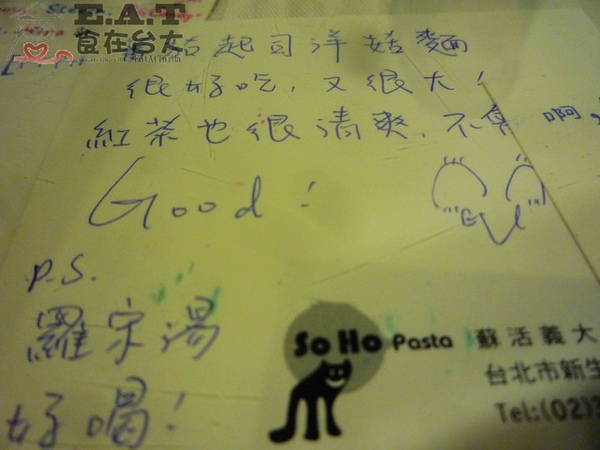 E.A.T
食在台大
起司洋菇麵
很好吃，又很大！
紅茶也很清爽，不 啊
Good！
P.S.
羅宋湯
好喝！
SoHo Pasta 蘇活義大
台北市新生
Tel:(02)3